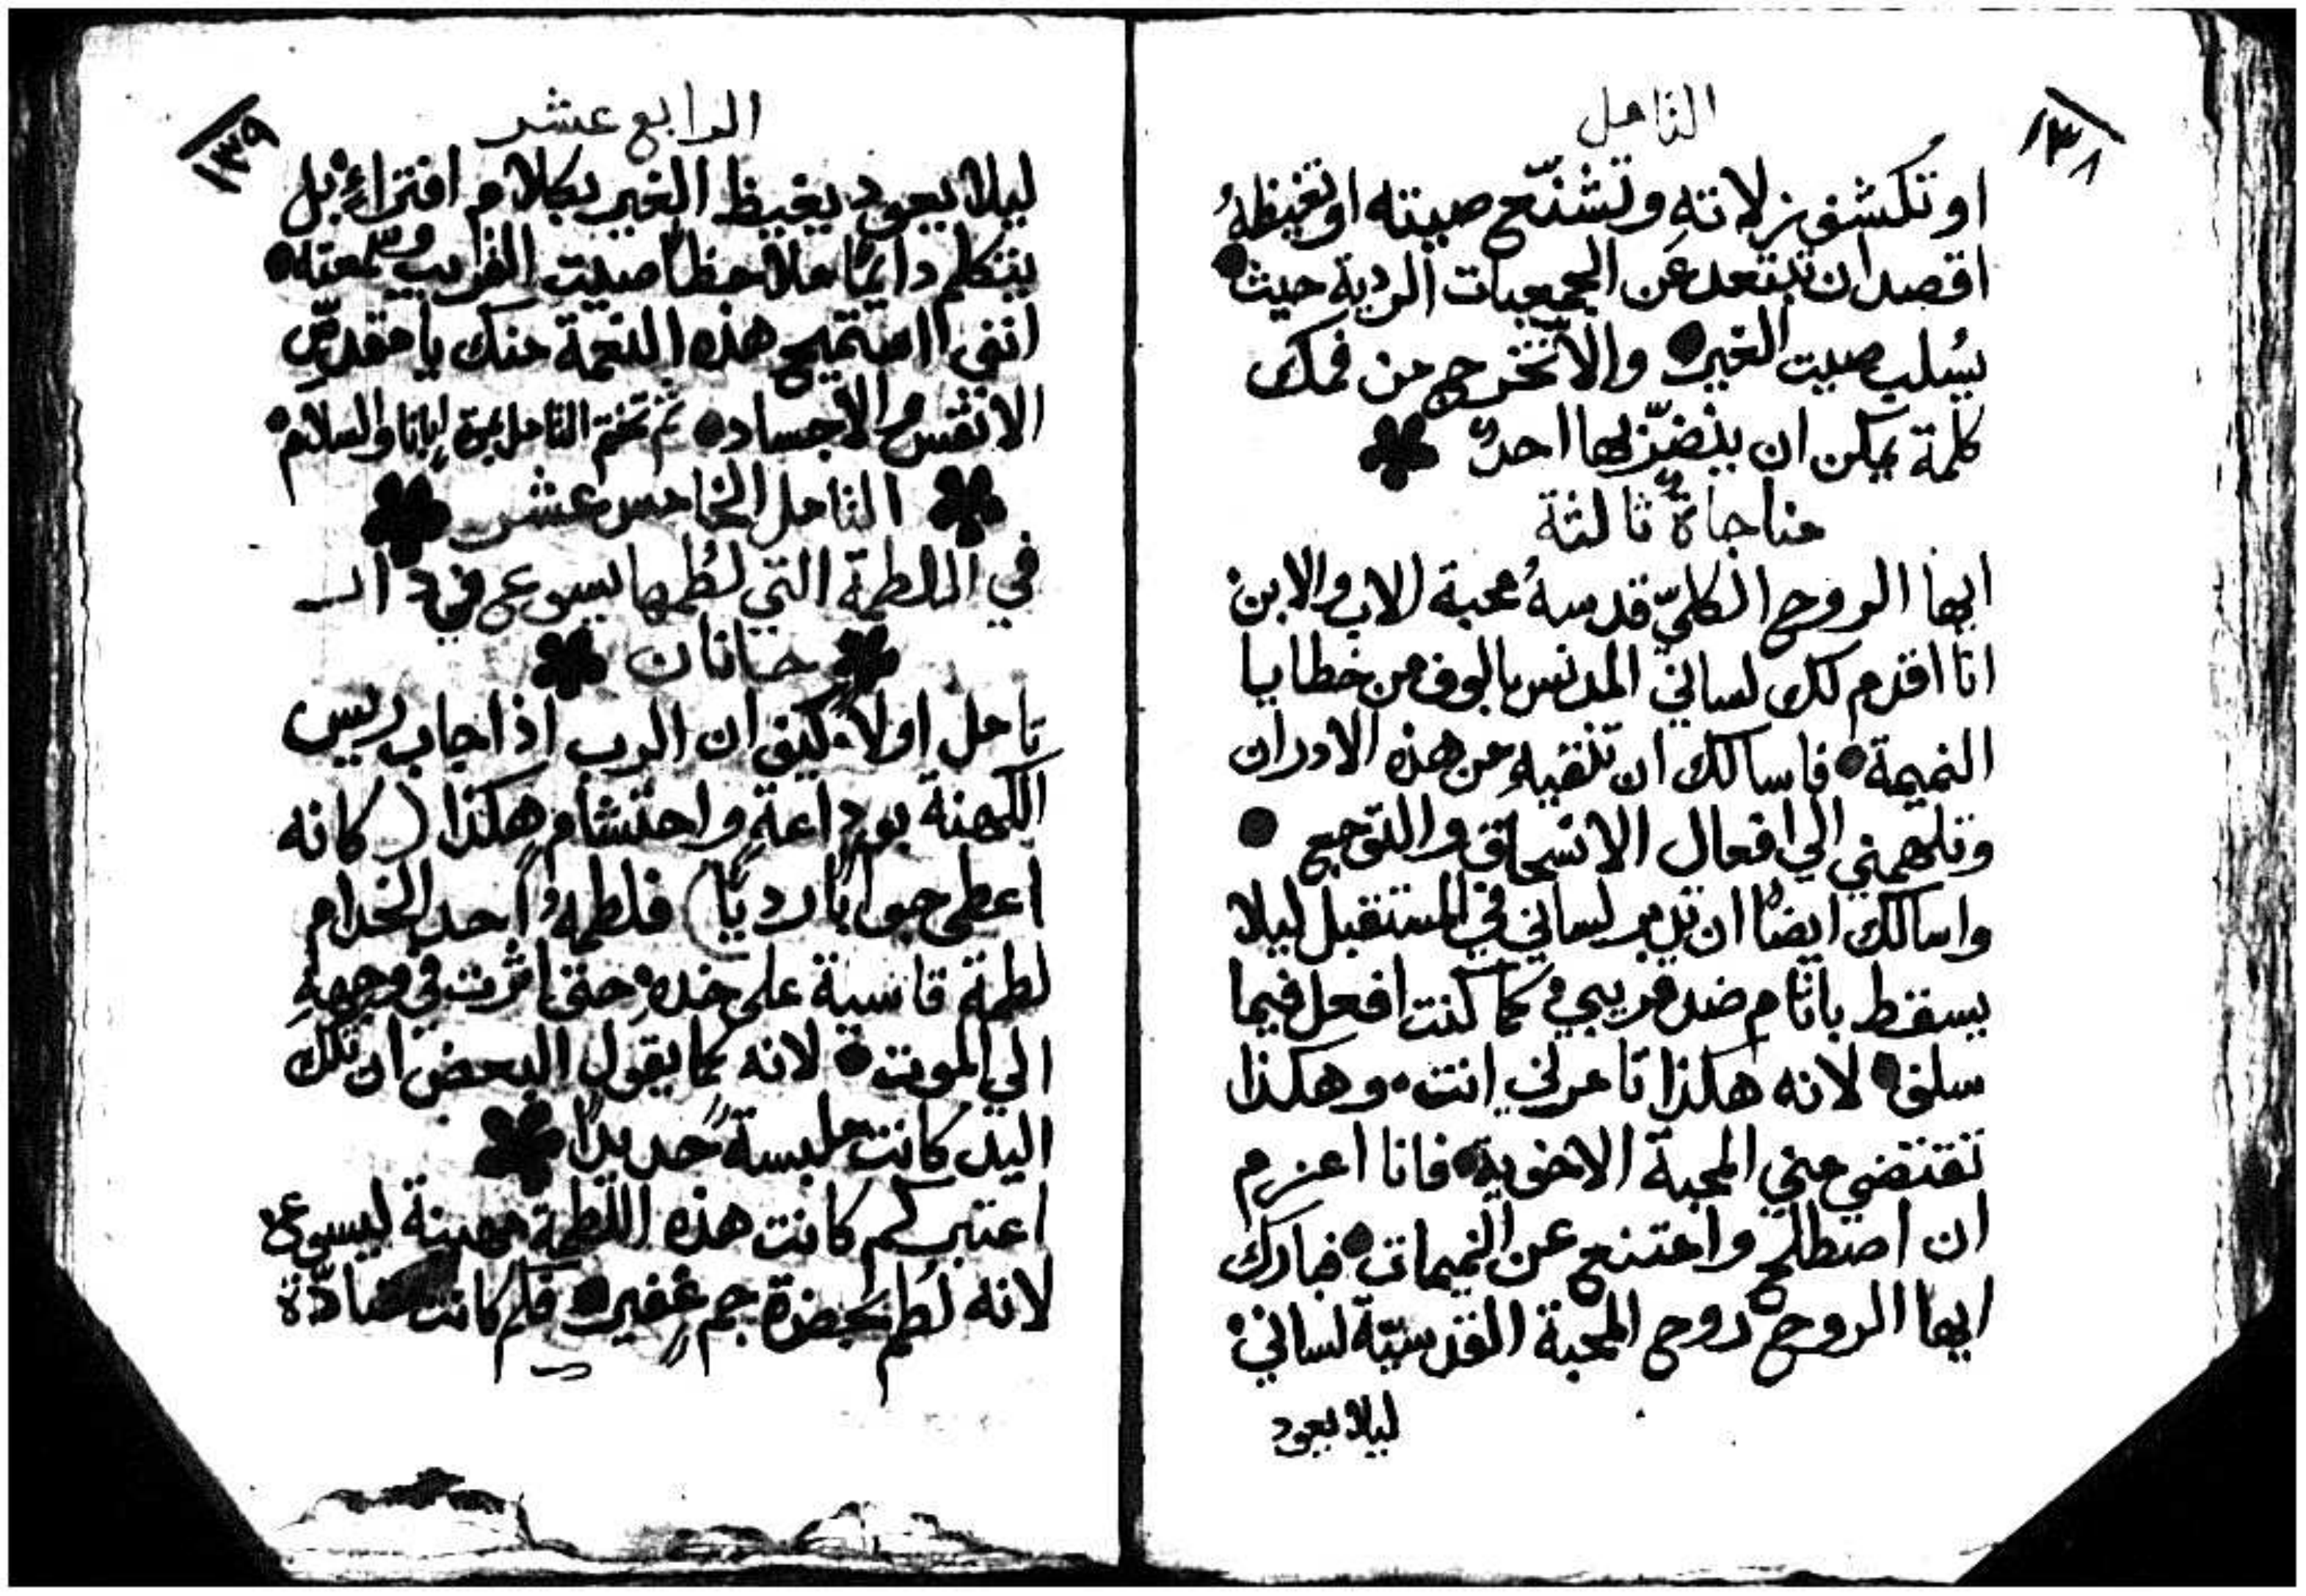 ١٣٨
التامل
او تكشف زلاته وتشنّع صيته او تغيظهُ
اقصد ان تبتعد عن الجمعيات الردية حيث
يسُلب صيت الغير والّا تخرج من فمك
كلمة يمكن ان ينضرّ بها احدٌ
مناجاةٌ ثالثة
ايها الروح الكليّ قدسهُ محبة الاب والابن
انا اقدم لك لساني المدنس بالوف من خطايا
النميمة فاسالك ان تنقيهِ من هذه الادران
وتلهمني الي افعال الانسحاق والتوجع
واسالك ايضًا ان تدبر لساني في المستقبل ليلا
يسقط باثام ضد قريبي كما كنت افعل فيما
سلف لانه هكذا تامرني انت وهكذا
تقتضي مني المحبة الاخوية فانا اعزم
ان اصطلح وامتنع عن النميمات فبارك
ايها الروح روح المحبة القدسيّة لساني
ليلا يعود
١٣٩
الرابع عشر
ليلا يعود يغيظ الغير بكلام افتراءٍ بل
يتكلم دايمًا ملاحظًا صيت القريب وسمعته
انني استميح هذه النعمة منك يا مقدّس
الانفس والاجساد ثم تختم التامل بمرة ابانا والسلام
التامل الخامس عشر
في اللطمة التي لُطمها يسوع في دار
حنانان
تامل اولًا كيف ان الرب اذ اجاب ريس
الكهنة بوداعةٍ واحتشامٍ هكذا (كانه
اعطي جوابًا رديًّا) فلطمهُ احد الخدام
لطمة قاسية علي خدهِ حتي اثرت في وجههِ
الي الموت لانه كما يقول البعض ان تلك
اليد كانت ملبسةً حديدًا
اعتبر كم كانت هذه اللطمة مهينة ليسوع
لانه لُطم بحضرة جمٍ غفير فكم كانت مضادّة